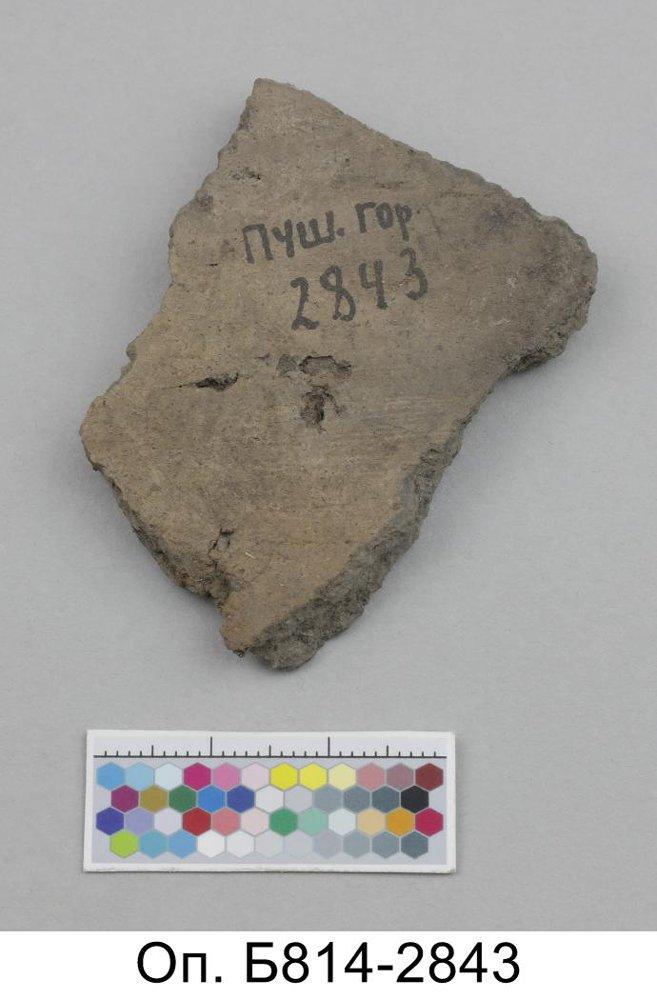 ПУШ. ГОР
2843
Оп. Б814-2843